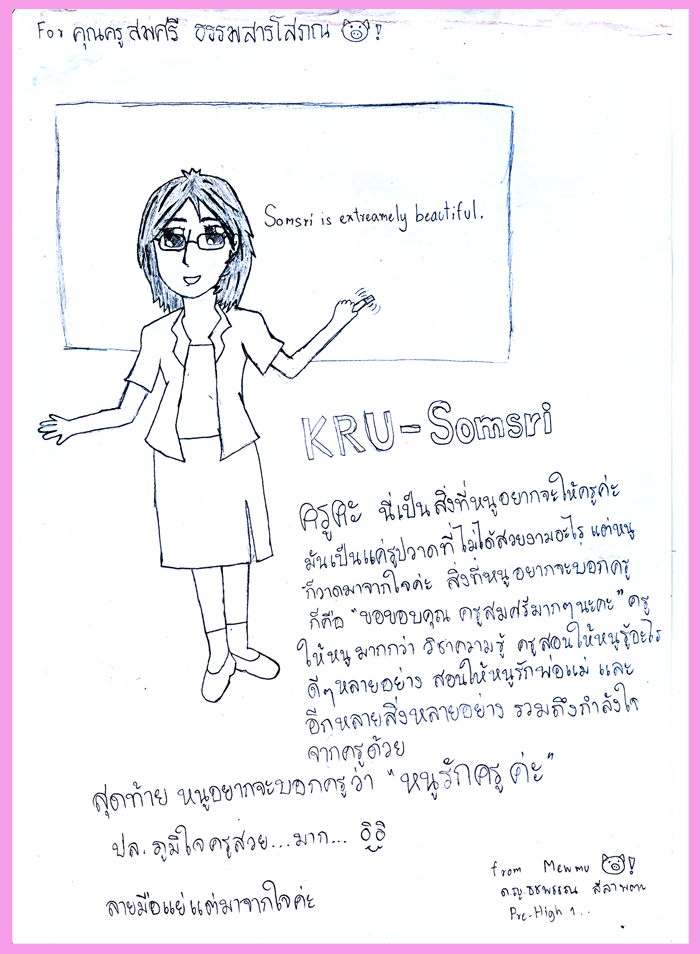 For คุณครูสมศรี ธรรมสารโสภณ
Somsri is extreamely beautiful.
KRU-Somsri
ครูคะ นี่เป็นสิ่งที่หนูอยากจะให้ครูค่ะ
มันเป็นแค่รูปวาดที่ไม่ได้สวยงามอะไร แต่หนู
ก็วาดมาจากใจค่ะ สิ่งที่หนูอยากจะบอกครู
ก็คือ "ขอขอบคุณ ครูสมศรีมากๆนะคะ" ครู
ให้หนูมากกว่า วิชาความรู้ ครูสอนให้หนูรู้อะไร
ดีๆหลายอย่าง สอนให้หนูรักพ่อแม่ และ
อีกหลายสิ่งหลายอย่าง รวมถึงกำลังใจ
จากครูด้วย
สุดท้าย หนูอยากจะบอกครูว่า "หนูรักครูค่ะ"
ปล. ภูมิใจครูสวย...มาก... อิอิ
ลายมือแย่แต่มาจากใจค่ะ
from Mewmu
ด.ญ.
Pre-High 1..